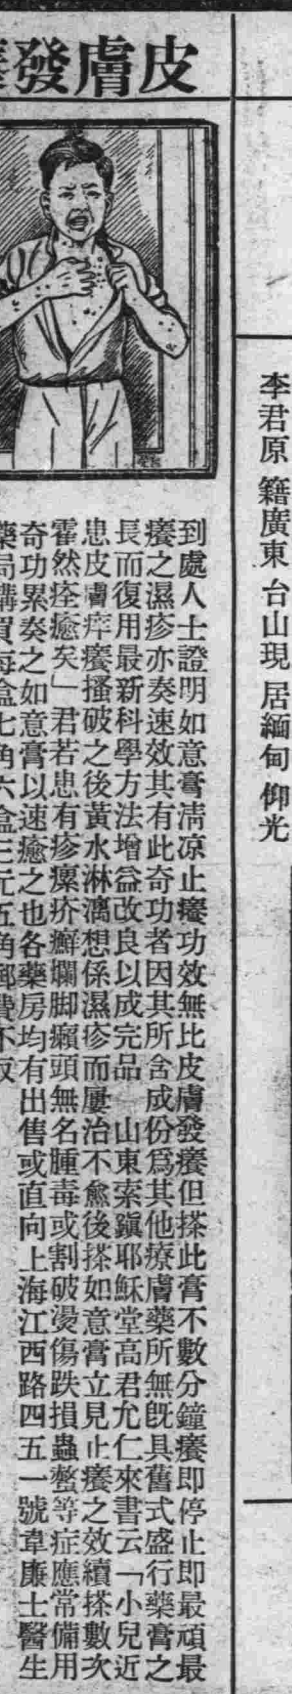 李君原籍廣東台山現居緬甸仰光
皮膚發
到處人士證明如意膏清凉止癢功效無比皮膚發癢但搽此膏不數分鐘癢即停止即最頑最
癢之濕疹亦奏速效其有此奇功者因其所含成份爲其他療膚藥所無既具舊式盛行藥膏之
長而復用最新科學方法增益改良以成完品 山東索鎭耶穌堂高君允仁來書云「小兒近
患皮膚痒癢搔破之後黃水淋漓想係濕疹而屢治不愈後搽如意膏立見止癢之效續搽數次
霍然痊癒矣」君若患有疹瘰疥癬爛脚癩頭無名腫毒或割破燙傷跌損蟲螫等症應常備用
奇功累奏之如意膏以速癒之也各藥房均有出售或直向上海江西路四五一號韋廉士醫生
藥局購買每盒七角六盒三元五角郵費不取